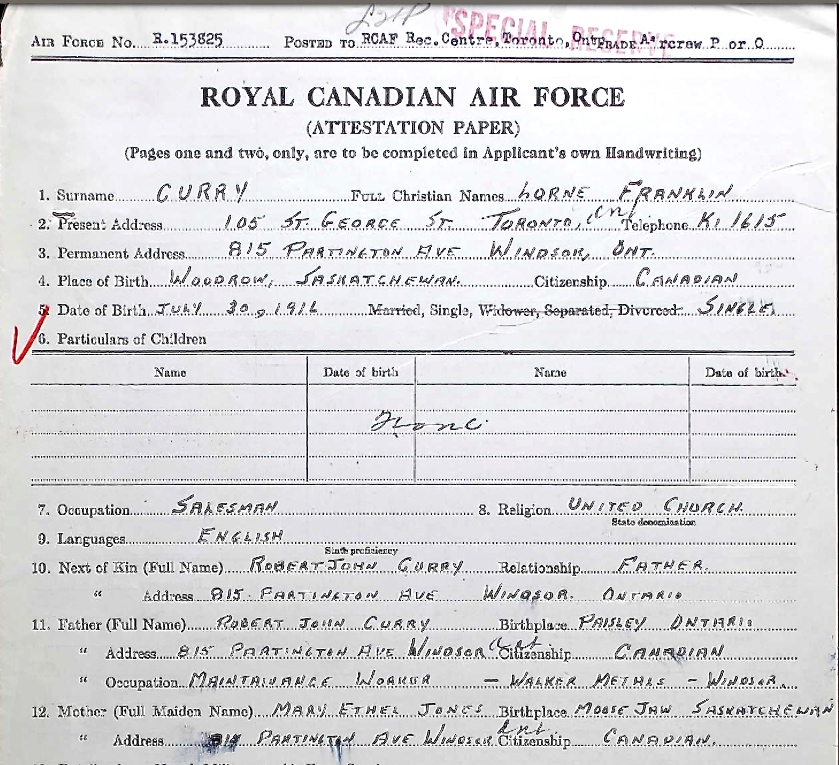 SPECIAL RESERVE
AIR FORCE No. R.153825 POSTED TO RCAF Rec. Centre, Toronto, Ont. GRADE Aircrew P or O
ROYAL CANADIAN AIR FORCE
(ATTESTATION PAPER)
(Pages one and two, only, are to be completed in Applicant's own Handwriting)
1. Surname CURRY FULL Christian Names LORNE FRANKLIN
2. Present Address 105 ST. GEORGE ST. TORONTO, Ont Telephone KI 1615
3. Permanent Address 815 PARTINGTON AVE WINDSOR, ONT.
4. Place of Birth WOODROW, SASKATCHEWAN. Citizenship CANADIAN
5. Date of Birth JULY 30, 1916 Married, Single, Widower, Separated, Divorced. SINGLE
6. Particulars of Children
Name Date of birth Name Date of birth
None
7. Occupation SALESMAN 8. Religion UNITED CHURCH.
State denomination
9. Languages ENGLISH
State proficiency
10. Next of Kin (Full Name) ROBERT JOHN CURRY Relationship FATHER.
" Address 815 PARTINGTON AVE WINDSOR. ONTARIO
11. Father (Full Name) ROBERT JOHN CURRY Birthplace PAISLEY ONTARIO
" Address 815 PARTINGTON AVE WINDSOR Ont Citizenship CANADIAN
" Occupation MAINTAINANCE WORKER – WALKER METALS – WINDSOR.
12. Mother (Full Maiden Name) MARY ETHEL JONES Birthplace MOOSE JAW SASKATCHEWAN
" Address 815 PARTINGTON AVE WINDSOR Ont Citizenship CANADIAN.